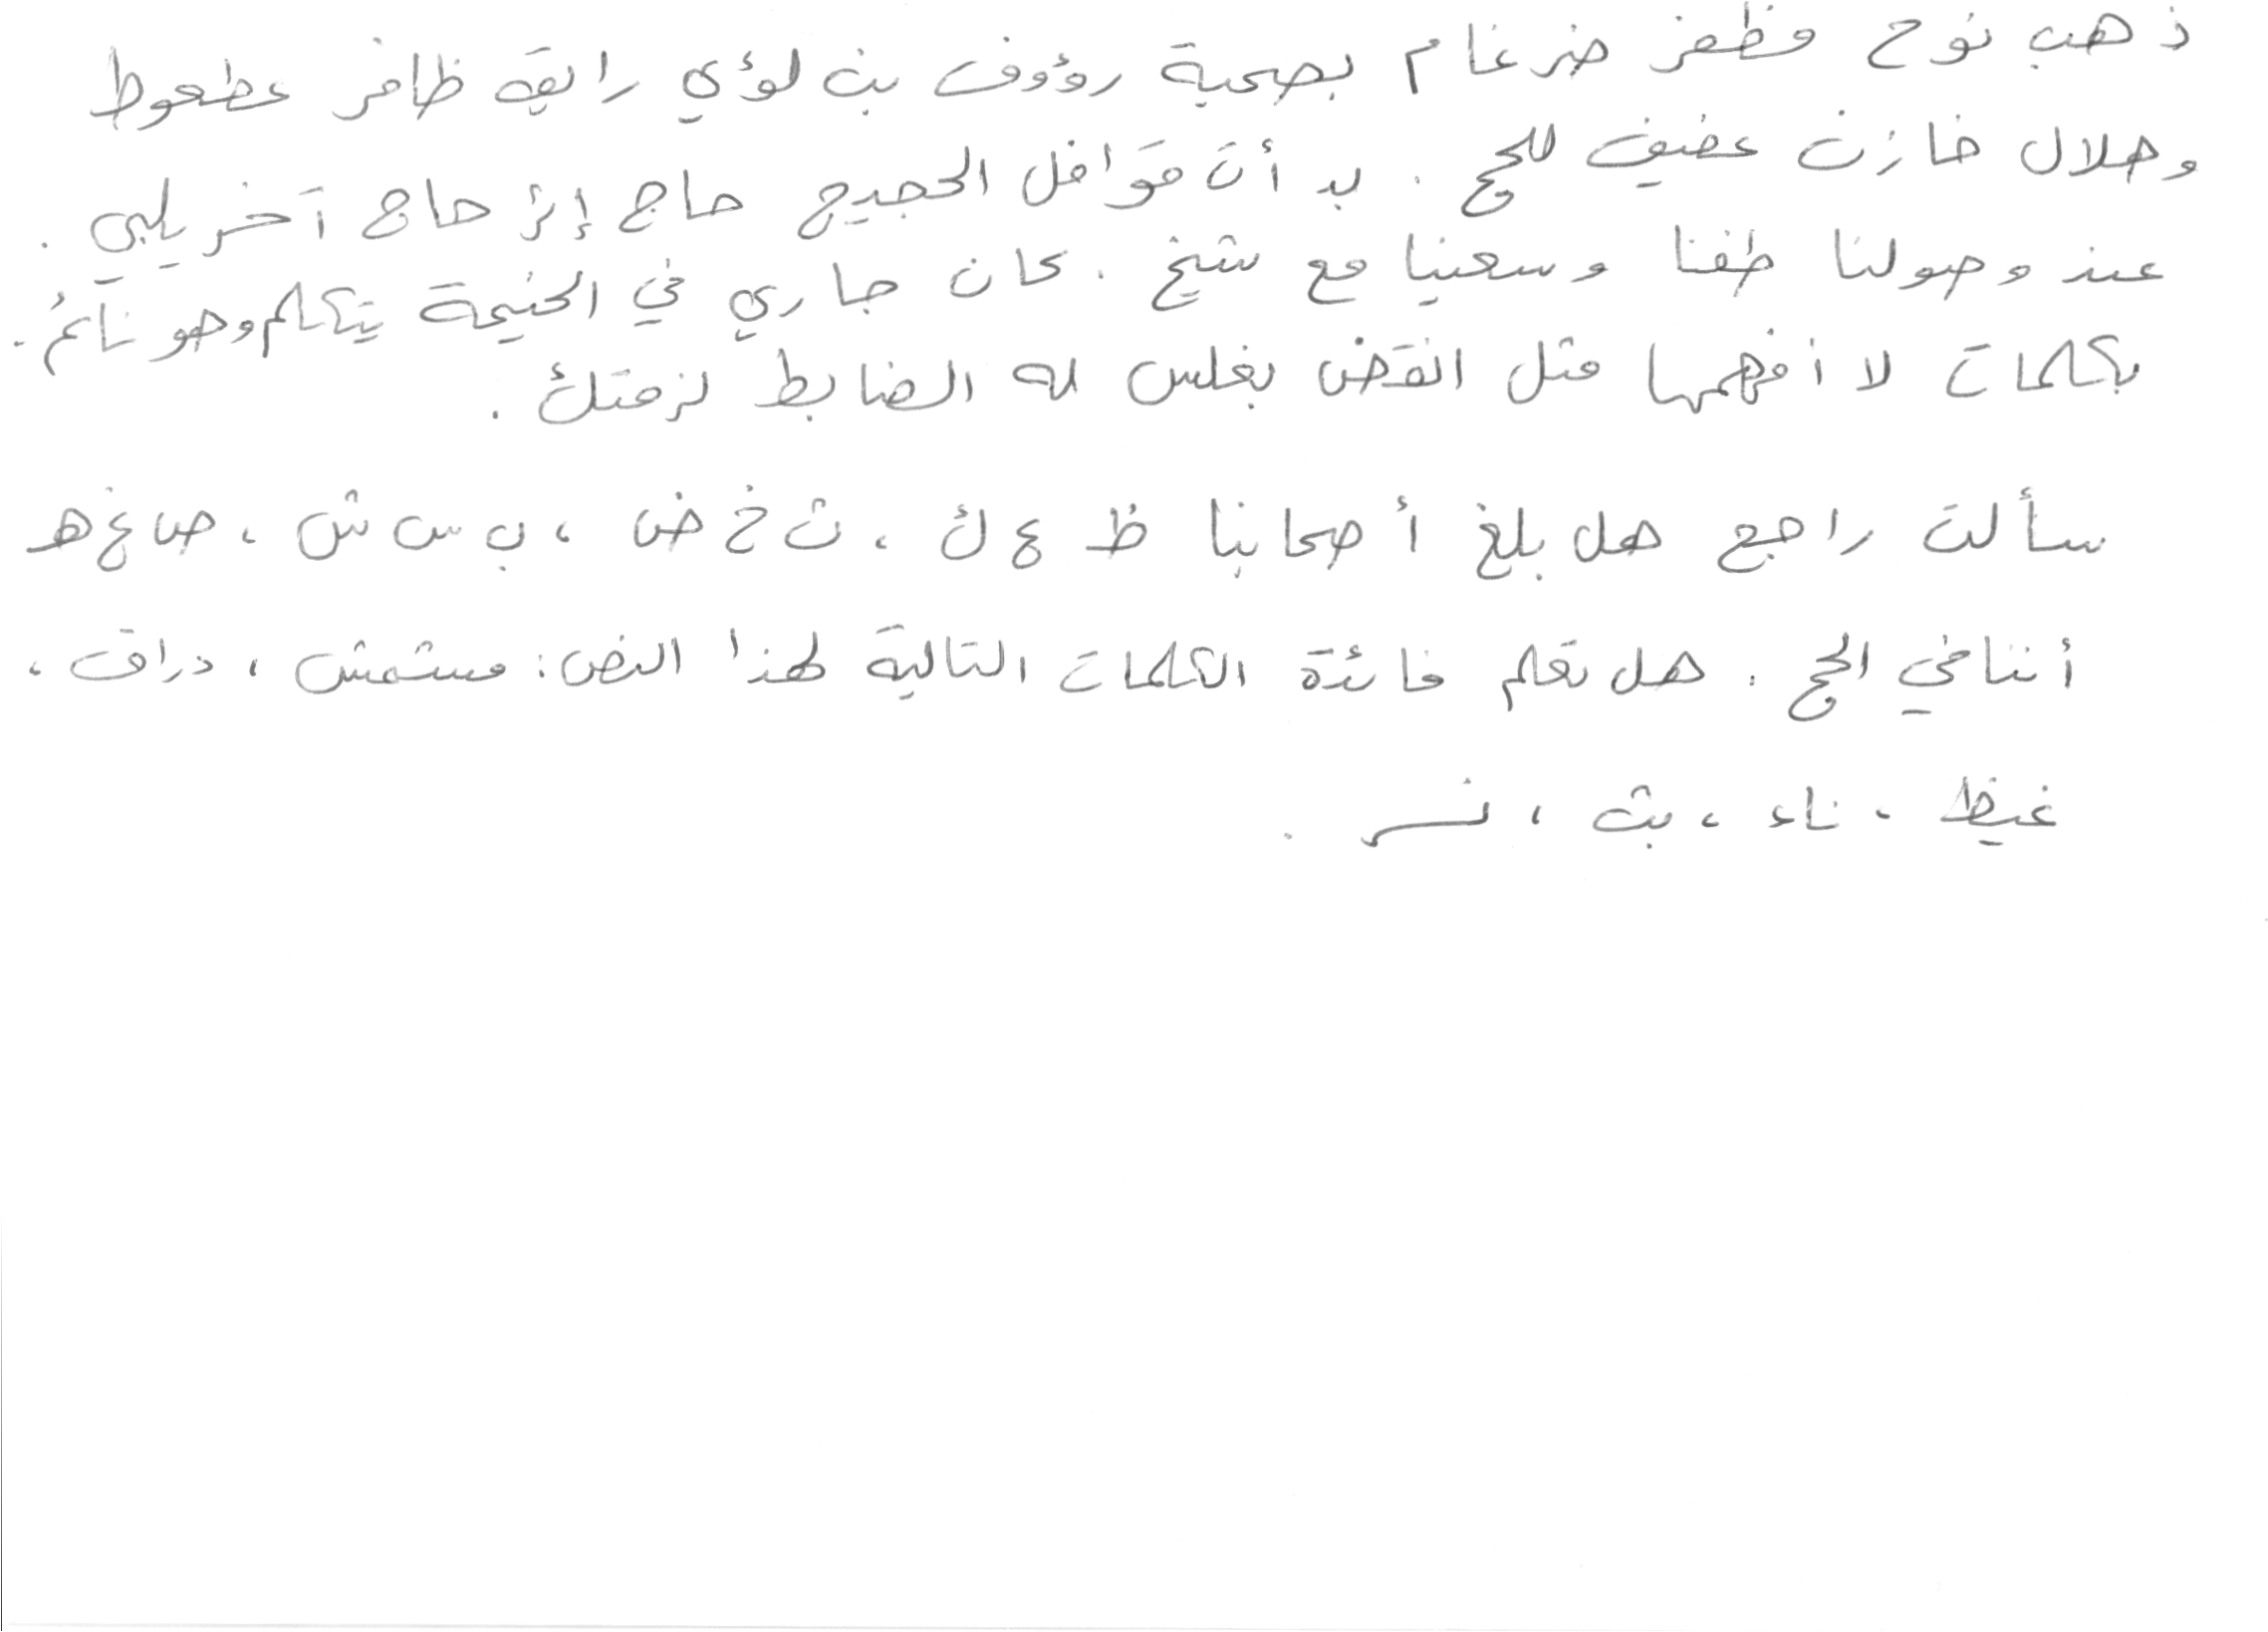 ذهب نوح وظفر ضرغام بصحبة رؤوف بن لؤي رايقه ظافر عطعوط
وهلال خازن عفيف للحج . بدأت قوافل الحجيج حاج إثر حاج آخر يلبي .
عند وصولنا طفنا وسعينا مع شيخ . كان جاري في الخيمة يتكلم وهو نائم .
بكلمات لا افهمها مثل انقض بغلس له الضابط لزمتك .
سألت راجع هل بلغ أصحابنا ظ ع ك ، ث خ ض ، ب س ش ، ص غ ھ
أننا في الحج . هل تعلم فائدة الكلمات التالية لهذا النص : مستمش ، دراق ،
غيظ ، ناء ، بث ، نسر .